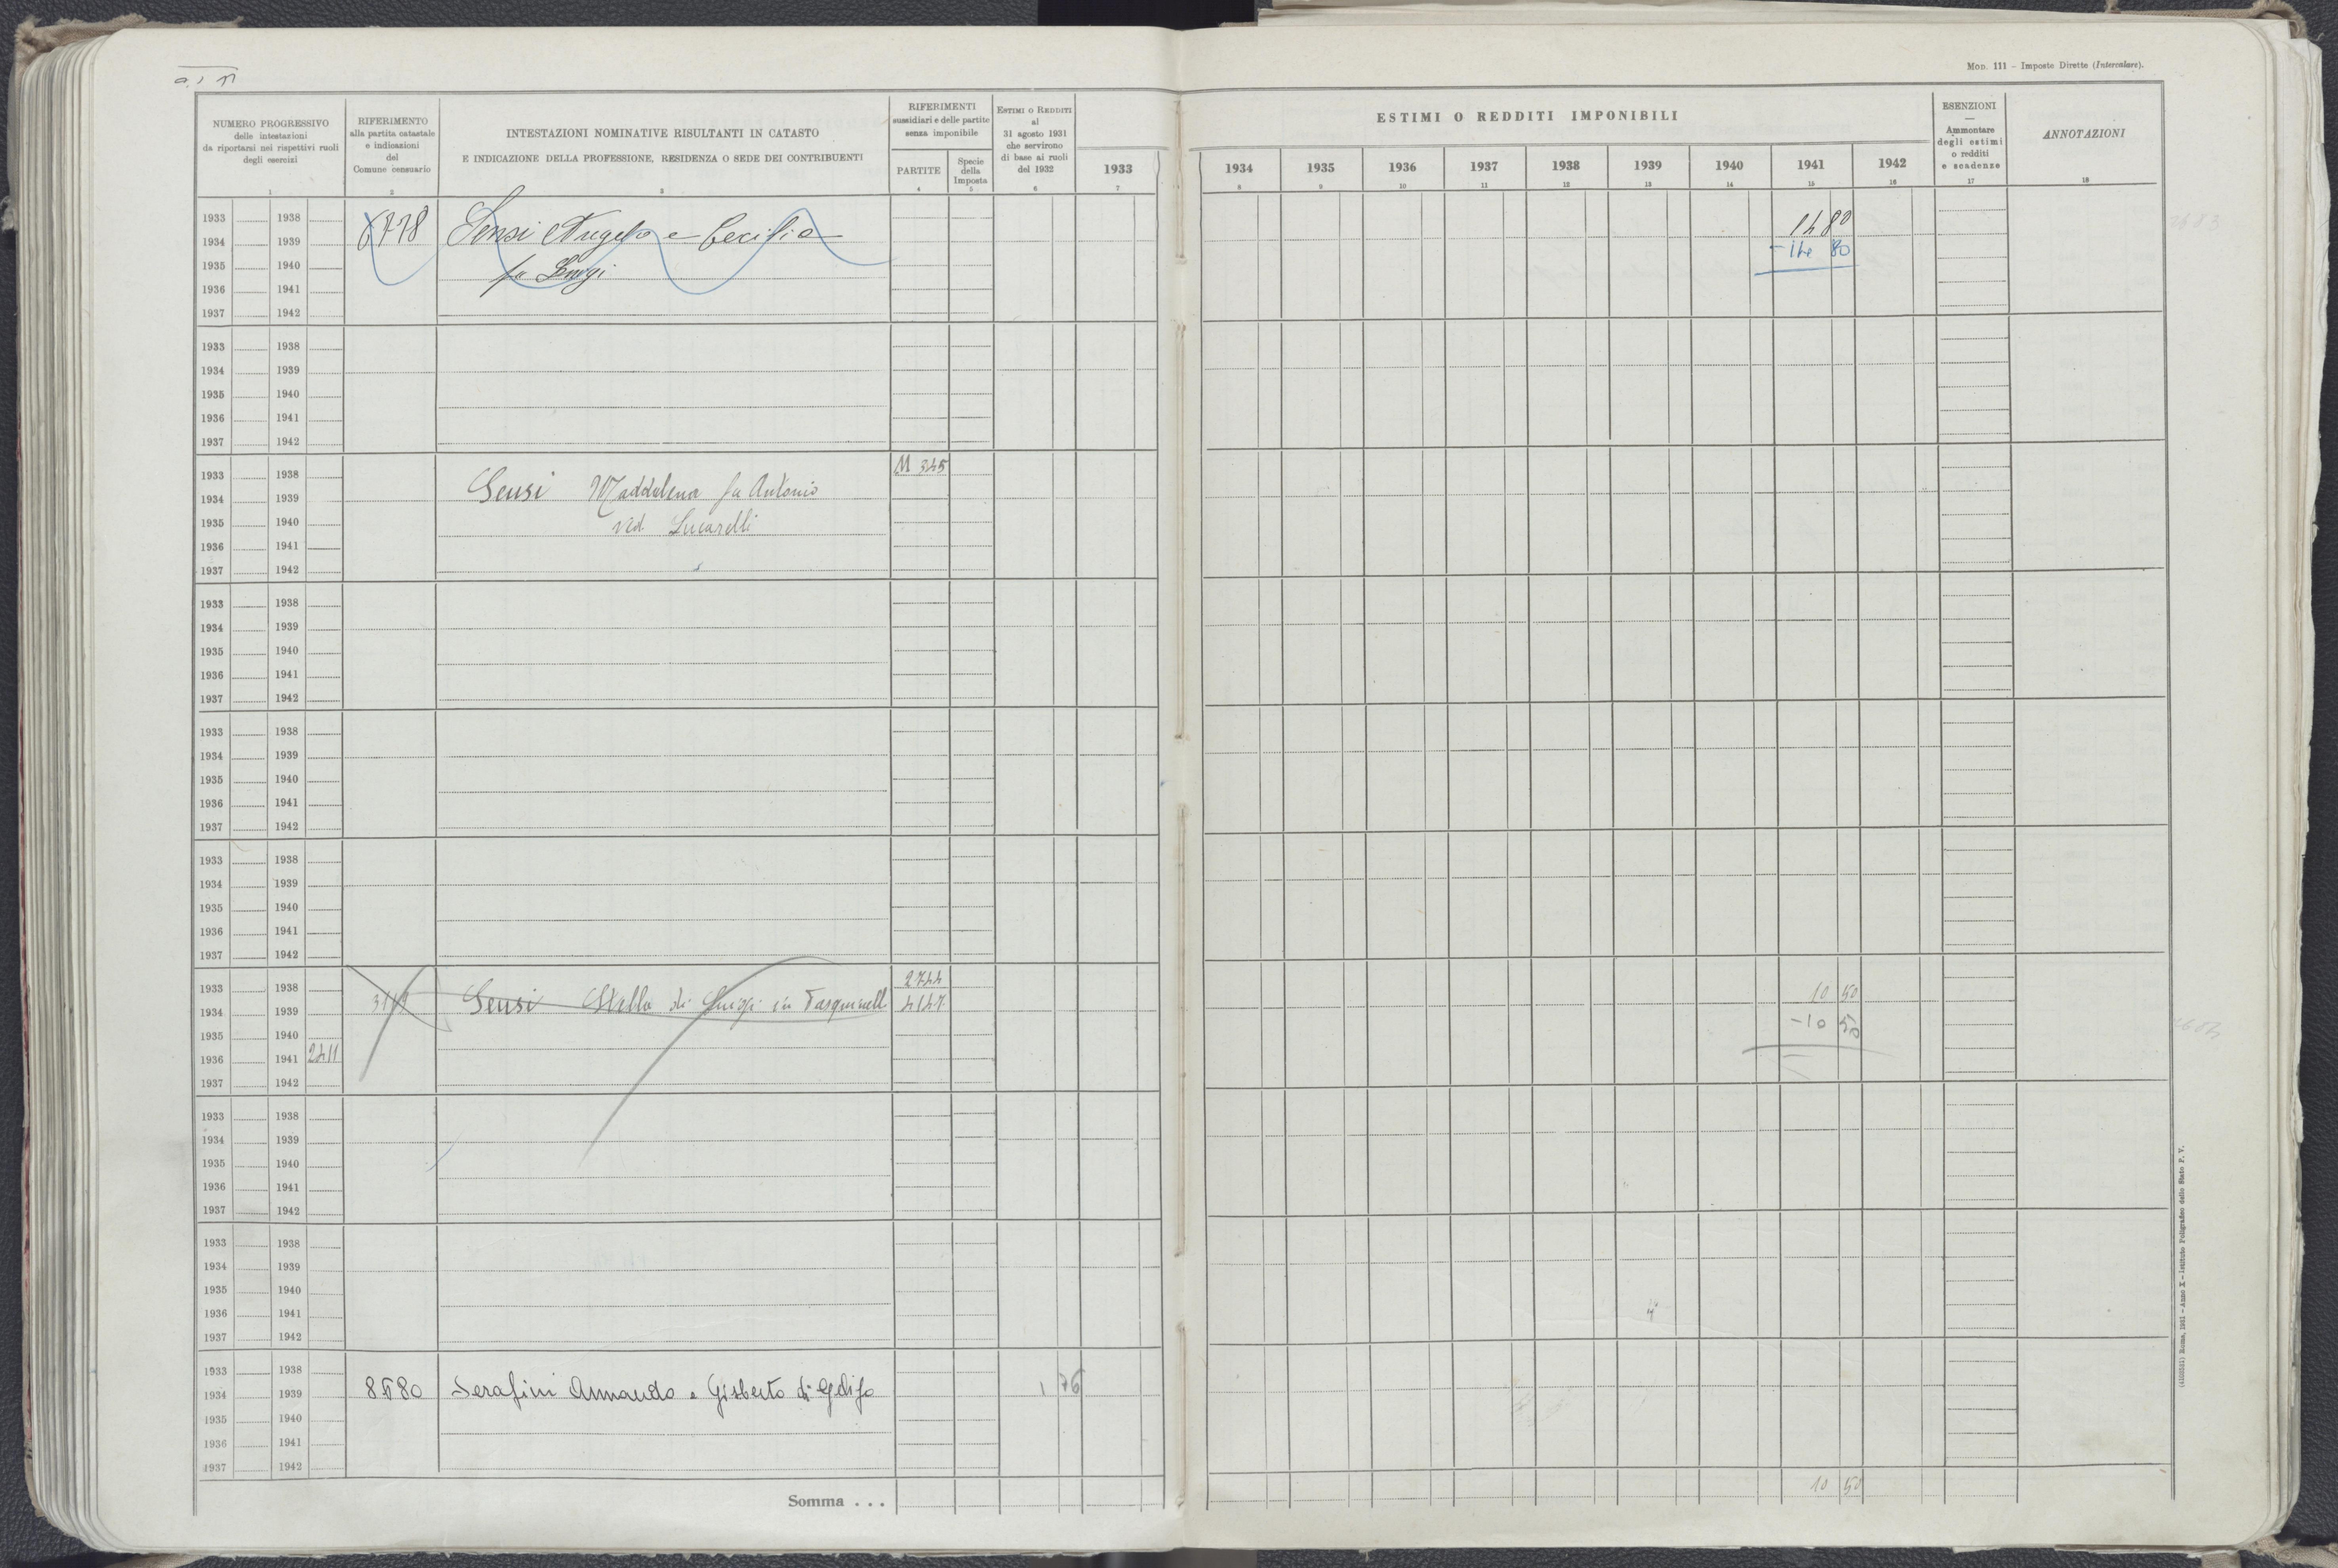 Mod. 111 - Imposte Dirette (Intercalare).
NUMERO PROGRESSIVO
delle intestazioni
da riportarsi nei rispettivi ruoli
degli esercizi
1
RIFERIMENTO
alla partita catastale
e indicazioni
del
Comune censuario
2
INTESTAZIONI NOMINATIVE RISULTANTI IN CATASTO
E INDICAZIONE DELLA PROFESSIONE, RESIDENZA O SEDE DEI CONTRIBUENTI
3
RIFERIMENTI
sussidiari e delle partite
senza imponibile
PARTITE
4
Specie
della
Imposta
5
Estimi o Redditi
al
31 agosto 1931
che servirono
di base ai ruoli
del 1932
6
1933
7
ESTIMI O REDDITI IMPONIBILI
1934 1935 1936 1937 1938 1939 1940 1941 1942
8 9 10 11 12 13 14 15 16
ESENZIONI
—
Ammontare
degli estimi
o redditi
e scadenze
17
ANNOTAZIONI
18
1933 1938
1934 1939 6778 Sensi Angelo e Cecilia 14 80
1935 1940 fu Luigi - 14 80
1936 1941
1937 1942
1933 1938
1934 1939
1935 1940
1936 1941
1937 1942
1933 1938 M 345
1934 1939 Sensi Maddalena fu Antonio
1935 1940 ved. Lucarelli
1936 1941
1937 1942
1933 1938
1934 1939
1935 1940
1936 1941
1937 1942
1933 1938
1934 1939
1935 1940
1936 1941
1937 1942
1933 1938
1934 1939
1935 1940
1936 1941
1937 1942
1933 1938 2744 10 50
1934 1939 Sensi Stella di Luigi in Pasquinell 4147
1935 1940 - 10 50
1936 1941 2411
1937 1942
1933 1938
1934 1939
1935 1940
1936 1941
1937 1942
1933 1938
1934 1939
1935 1940
1936 1941
1937 1942
1933 1938
1934 1939 8580 Serafini Armando e Gisberto di 1 76
1935 1940
1936 1941
1937 1942
Somma . . . 10 50
(4105051) Roma, 1931 - Anno X - Istituto Poligrafico dello Stato P. V.